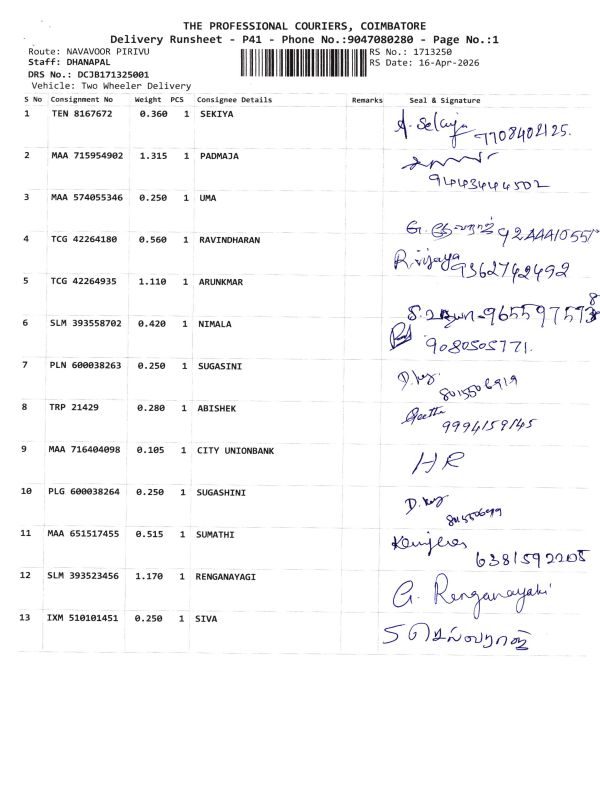 THE PROFESSIONAL COURIERS, COIMBATORE
Delivery Runsheet - P41 - Phone No.:9047080280 - Page No.:1
Route: NAVAVOOR PIRIVU RS No.: 1713250
Staff: DHANAPAL RS Date: 16-Apr-2026
DRS No.: DCJB171325001
Vehicle: Two Wheeler Delivery
S No Consignment No Weight PCS Consignee Details Remarks Seal & Signature
1 TEN 8167672 0.360 1 SEKIYA
7708402125.
2 MAA 715954902 1.315 1 PADMAJA
9443444502
3 MAA 574055346 0.250 1 UMA
4 TCG 42264180 0.560 1 RAVINDHARAN
R. vijaya 9362742492
5 TCG 42264935 1.110 1 ARUNKMAR
6 SLM 393558702 0.420 1 NIMALA
9080505771.
7 PLN 600038263 0.250 1 SUGASINI
8015506919
8 TRP 21429 0.280 1 ABISHEK
9994159145
9 MAA 716404098 0.105 1 CITY UNIONBANK
HR
10 PLG 600038264 0.250 1 SUGASHINI
11 MAA 651517455 0.515 1 SUMATHI
6381592208
12 SLM 393523456 1.170 1 RENGANAYAGI
G. Renganayaki
13 IXM 510101451 0.250 1 SIVA